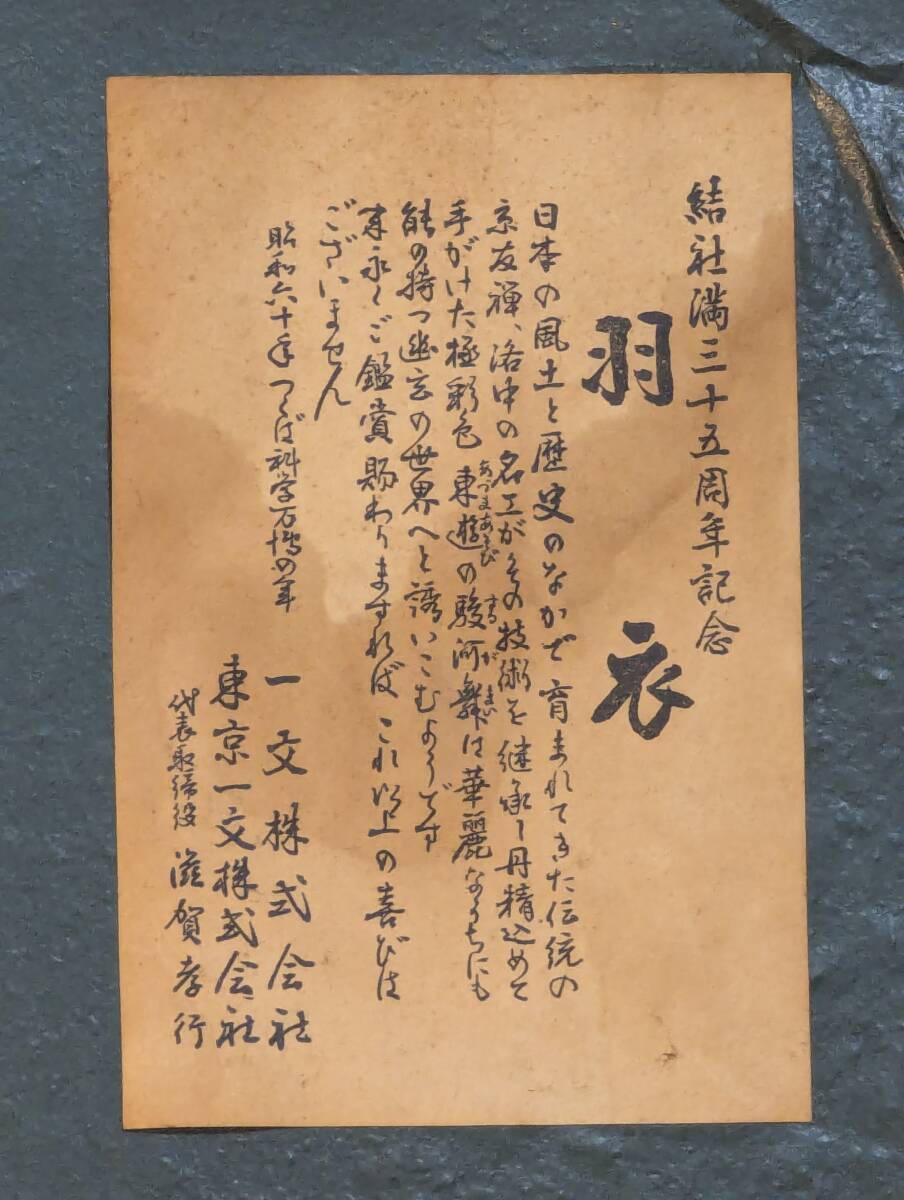 結社満三十五周年記念
羽衣
日本の風土と歴史のなかで育まれてきた伝統の
京友禅、洛中の名工がその技術を継承し丹精込めて
手がけた極彩色 東遊の駿河舞は華麗なうちにも
あづまあそび するがまい
能の持つ幽玄の世界へと誘いこむようです
末永くご鑑賞賜わりますればこれ以上の喜びは
ございません
昭和六十年 つくば科学万博の年
一文株式会社
東京一文株式会社
代表取締役 滋賀孝行